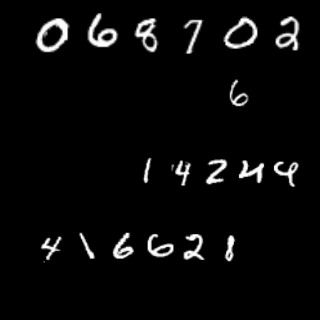 068702
6
14244
416621